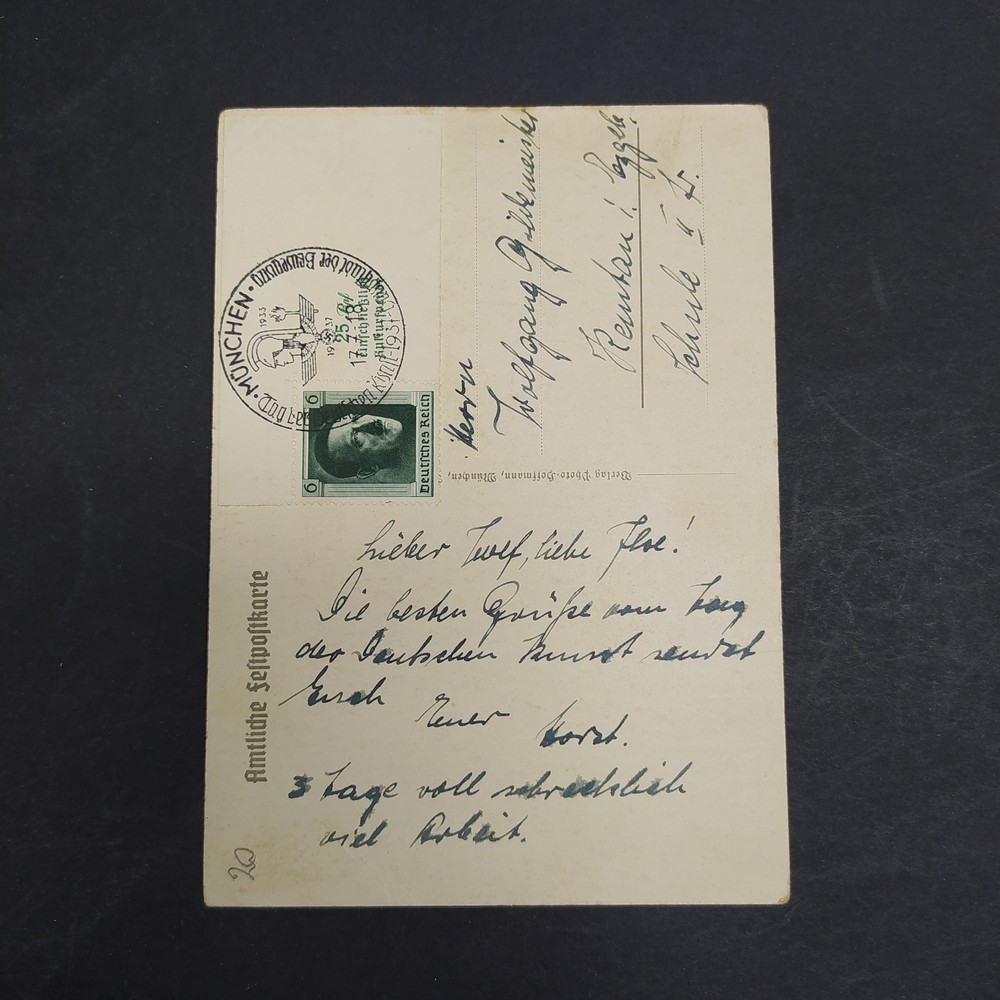 MÜNCHEN · Hauptstadt der Bewegung ·
Tag der Deutschen Kunst 1937
1933
1937
17.7.
18
25 Rpf
einschließlich
Kulturspende
6 6
Deutsches Reich
Herrn
Wolfgang Gildemeister
Verlag Photo-Hoffmann, München,
Amtliche Festpostkarte
Lieber Wolf, liebe Ilse!
Die besten Grüße vom Tag
der Deutschen Kunst sendet
Euch
Euer
Horst.
3 Tage voll schrecklich
viel Arbeit.
20